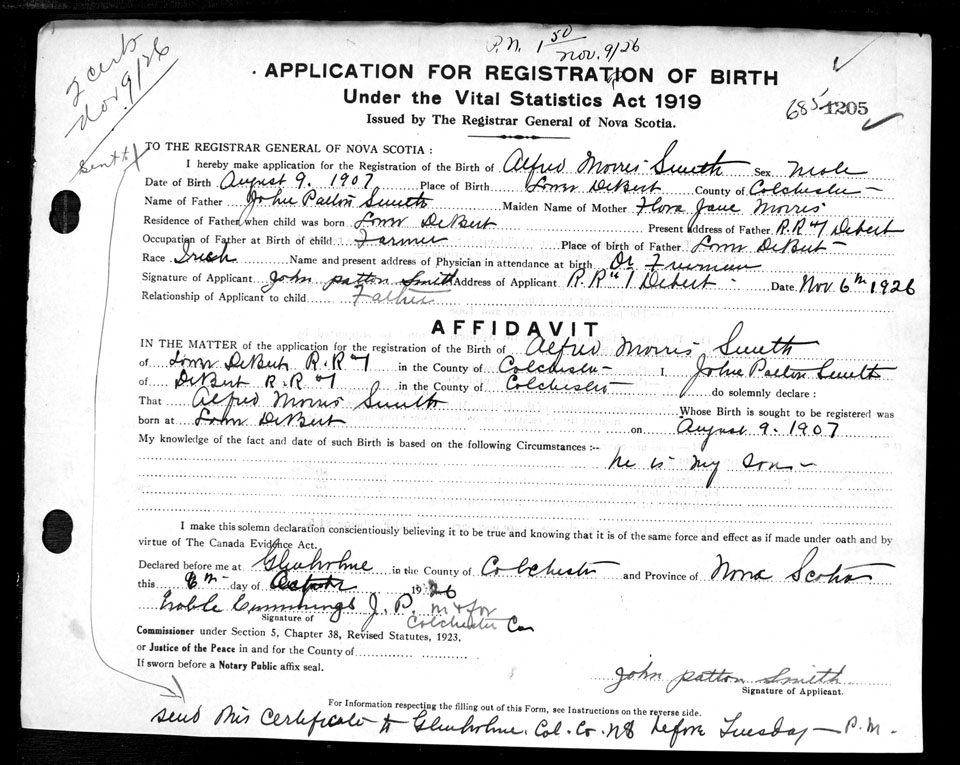 P.N. 1 50
Nov. 9/26
2 certs
Nov 9/26
sent to
APPLICATION FOR REGISTRATION OF BIRTH
Under the Vital Statistics Act 1919
Issued by The Registrar General of Nova Scotia.
685 1205
TO THE REGISTRAR GENERAL OF NOVA SCOTIA :
I hereby make application for the Registration of the Birth of Alfred Morris Smith Sex Male
Date of Birth August 9. 1907 Place of Birth Lower DeBert County of Colchester
Name of Father John Patton Smith Maiden Name of Mother Flora Jane Morris
Residence of Father when child was born Lower DeBert Present Address of Father R.R #1 Debert
Occupation of Father at Birth of child Farmer Place of birth of Father Lower DeBert
Race Irish Name and present address of Physician in attendance at birth Dr. Freeman
Signature of Applicant John patton Smith Address of Applicant R.R " 1 Debert Date Nov 6th 1926
Relationship of Applicant to child Father
AFFIDAVIT
IN THE MATTER of the application for the registration of the Birth of Alfred Morris Smith
of Lower DeBert R.R #1 in the County of Colchester I, John Patton Smith
of DeBert R.R #1 in the County of Colchester do solemnly declare :
That Alfred Morris Smith Whose Birth is sought to be registered was
born at Lower DeBert on August 9. 1907
My knowledge of the fact and date of such Birth is based on the following Circumstances :--
he is my son
I make this solemn declaration conscientiously believing it to be true and knowing that it is of the same force and effect as if made under oath and by
virtue of The Canada Evidence Act.
Declared before me at Glenholme in the County of Colchester and Province of Nova Scotia
this 6th day of 1926
Noble Cummings J. P. in & for
Signature of Colchester Co
Commissioner under Section 5, Chapter 38, Revised Statutes, 1923,
or Justice of the Peace in and for the County of
If sworn before a Notary Public affix seal.
John patton Smith
Signature of Applicant.
For Information respecting the filling out of this Form, see Instructions on the reverse side.
send this Certificate to Glenholme. Col. Co. NS before Tuesday P.M.